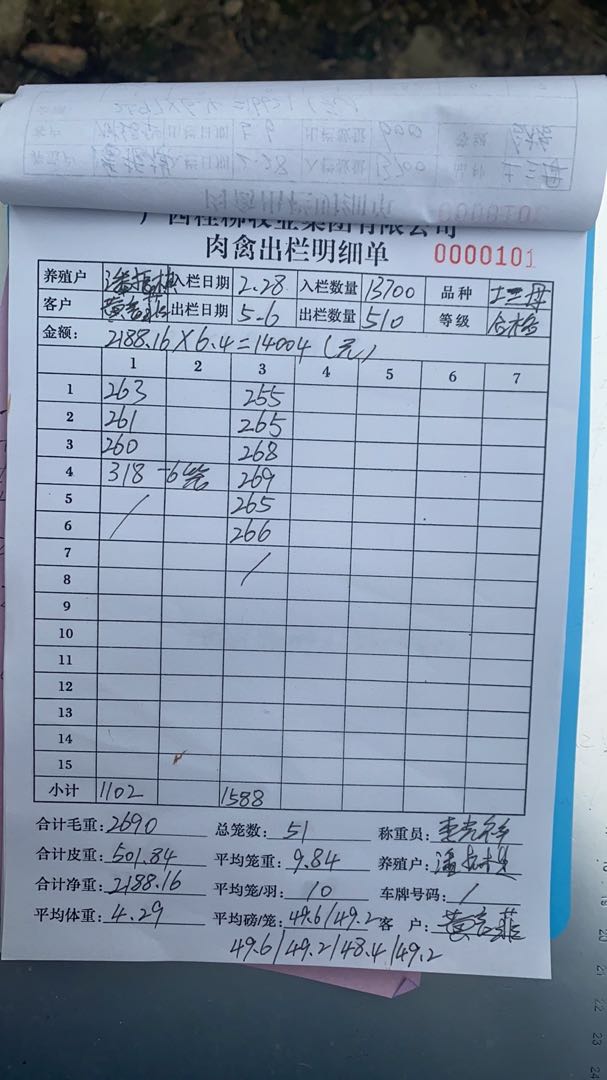 广西桂柳牧业集团有限公司
肉禽出栏明细单 0000101
养殖户 入栏日期 2.28 入栏数量 13700 品种 土三母
客户 出栏日期 5.6 出栏数量 510 等级 合格
金额: 2188.16×6.4=14004(元)
1 2 3 4 5 6 7
1 263 255
2 261 265
3 260 268
4 318 -6笼 269
5 / 265
6 266
7
8 /
9
10
11
12
13
14
15
小计 1102 1588
合计毛重: 2690 总笼数: 51 称重员:
合计皮重: 501.84 平均笼重: 9.84 养殖户:
合计净重: 2188.16 平均笼/羽: 10 车牌号码: /
平均体重: 4.29 平均磅/笼: 49.6/49.2 客户:
49.6/49.2/48.4/49.2